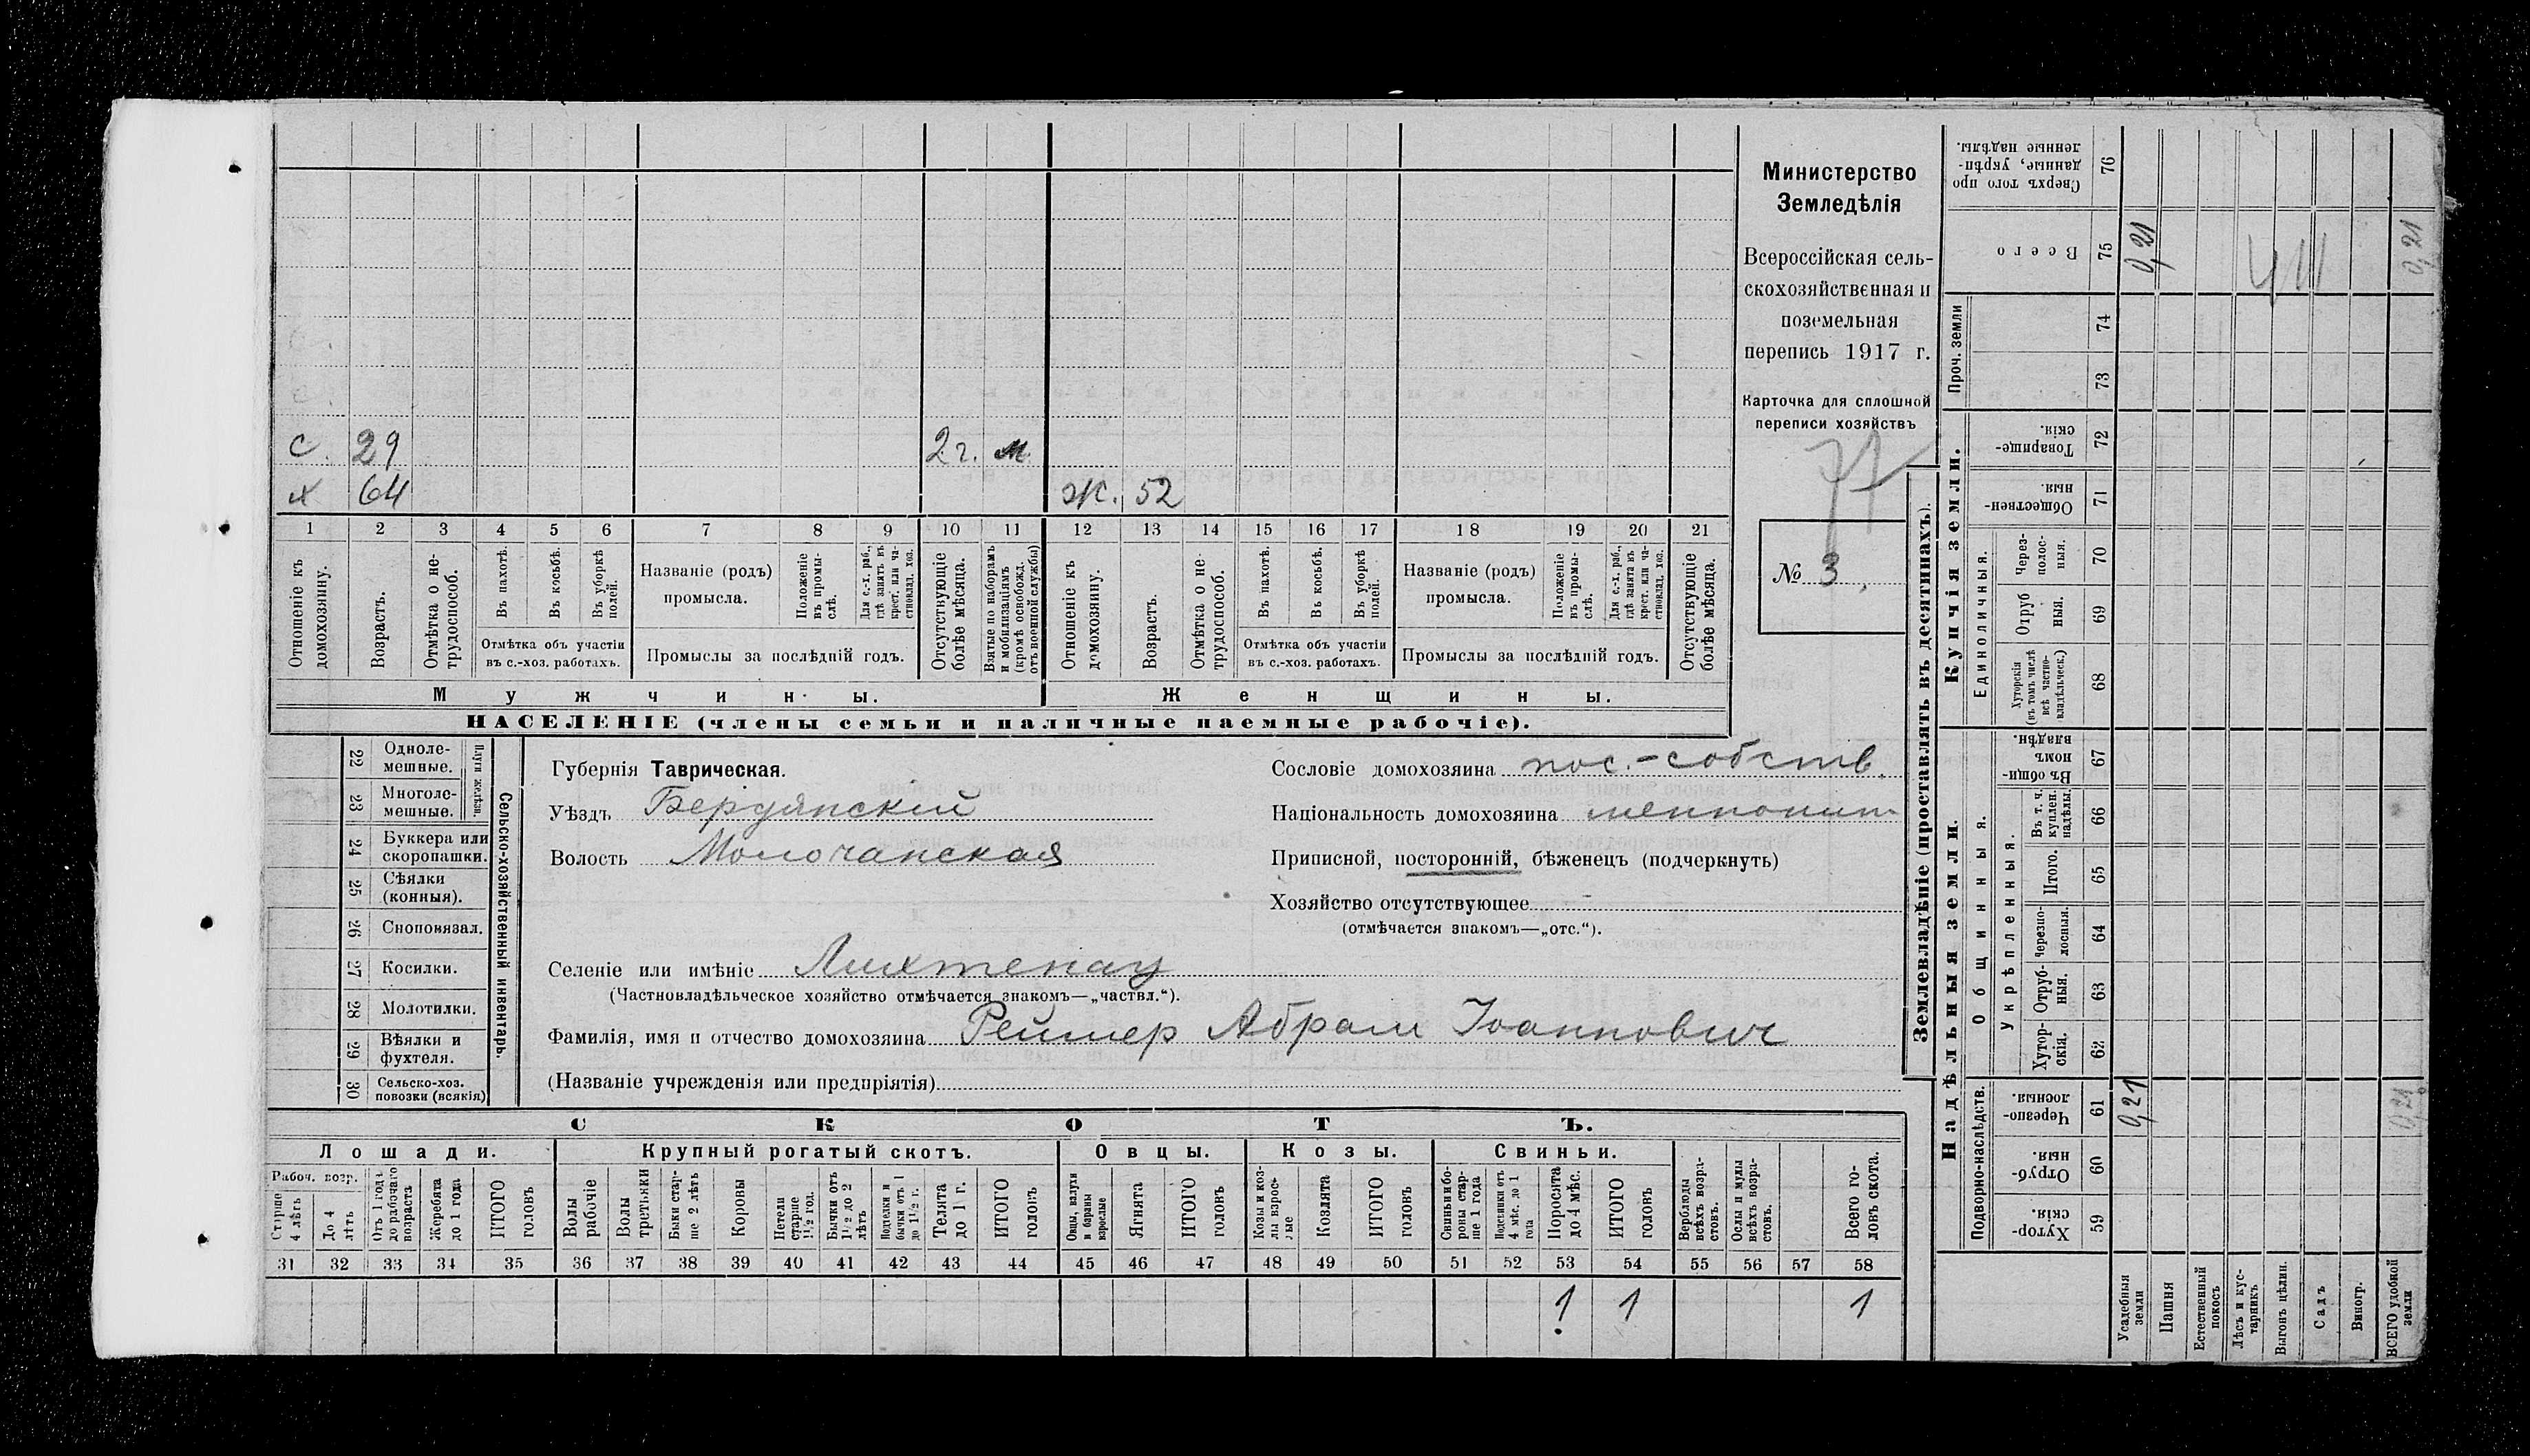 с. 29 2 г. м.
х 64 ж. 52
1 2 3 4 5 6 7 8 9 10 11 12 13 14 15 16 17 18 19 20 21
Отношеніе къ домохозяину.
Возрастъ.
Отмѣтка о нетрудоспособ.
Въ пахотѣ.
Въ косьбѣ.
Въ уборкѣ полей.
Отмѣтка объ участіи въ с.-хоз. работахъ.
Названіе (родъ) промысла.
Положеніе въ промыслѣ.
Для с.-х. раб., гдѣ занятъ въ крест. или частновлад. хоз.
Промыслы за послѣдній годъ.
Отсутствующіе болѣе мѣсяца.
Взятые по наборамъ и мобилизаціямъ (кромѣ освобожд. отъ военной службы)
Отношеніе къ домохозяину.
Возрастъ.
Отмѣтка о нетрудоспособ.
Въ пахотѣ.
Въ косьбѣ.
Въ уборкѣ полей.
Отмѣтка объ участіи въ с.-хоз. работахъ.
Названіе (родъ) промысла.
Положеніе въ промыслѣ.
Для с.-х. раб., гдѣ занята въ крест. или частновлад. хоз.
Промыслы за послѣдній годъ.
Отсутствующіе болѣе мѣсяца.
Мужчины.
Женщины.
НАСЕЛЕНІЕ (члены семьи и наличные наемные рабочіе).
Министерство
Земледѣлія
Всероссійская сель-
скохозяйственная и
поземельная
перепись 1917 г.
Карточка для сплошной
переписи хозяйствъ
№ 3.
22 Одноле-
мешные.
23 Многоле-
мешные.
Плуги желѣзн.
24 Буккера или
скоропашки.
25 Сѣялки
(конныя).
26 Сноповязал.
27 Косилки.
28 Молотилки.
29 Вѣялки и
фухтеля.
30 Сельско-хоз.
повозки (всякія)
Сельско-хозяйственный инвентарь.
Губернія Таврическая.
Уѣздъ Бердянскій
Волость Молочанская
Сословіе домохозяина пос.-собств.
Національность домохозяина меннонит
Приписной, посторонній, бѣженецъ (подчеркнуть)
Хозяйство отсутствующее
(отмѣчается знакомъ—„отс.“).
Селеніе или имѣніе Лихтенау
(Частновладѣльческое хозяйство отмѣчается знакомъ—„частвл.“).
Фамилія, имя и отчество домохозяина Реймер Абрам Іоаннович
(Названіе учрежденія или предпріятія)
СКОТЪ.
Лошади. Крупный рогатый скотъ. Овцы. Козы. Свиньи.
Рабоч. возр.
Старше 4 лѣтъ
До 4 лѣтъ
Отъ 1 года до рабочаго возраста
Жеребята до 1 года
ИТОГО головъ
Волы рабочіе
Волы третьяки
Быки старше 2 лѣтъ
Коровы
Нетели старше 1½ год.
Бычки отъ 1½ до 2 лѣтъ
Подтелки и бычки отъ 1 до 1½ г.
Телята до 1 г.
ИТОГО головъ
Овцы, валухи и бараны взрослые
Ягнята
ИТОГО головъ
Козы и козлы взрослые
Козлята
ИТОГО головъ
Свиньи и бороны старше 1 года
Подсвинки отъ 4 мѣс. до 1 года
Поросята до 4 мѣс.
ИТОГО головъ
Верблюды всѣхъ возрастовъ.
Ослы и мулы всѣхъ возрастовъ.
Всего головъ скота.
31 32 33 34 35 36 37 38 39 40 41 42 43 44 45 46 47 48 49 50 51 52 53 54 55 56 57 58
1 1 1
Землевладѣніе (проставлять въ десятинахъ).
Сверхъ того проданные, укрѣпленные надѣлы. 76
Всего 75 0,21 0,21
Проч. земли 74 73
Купчія земли.
Товарищескія. 72
Общественныя. 71
Единоличныя.
Черезполосныя. 70
Отрубныя. 69
Хуторскія (въ томъ числѣ всѣ частновладѣльческ.) 68
Надѣльныя земли.
Общинныя.
Въ общинномъ владѣн. 67
Укрѣпленныя.
Въ т. ч. куплен. надѣлы. 66
Итого. 65
Черезполосныя. 64
Отрубныя. 63
Хуторскія. 62
Подворно-наслѣдств.
Черезполосныя. 61 0,21 0,21
Отрубныя. 60
Хуторскія. 59
Усадебныя земли
Пашня
Естественный покосъ
Лѣсъ и кустарникъ
Выгонъ цѣлин.
Садъ
Виногр.
ВСЕГО удобной земли